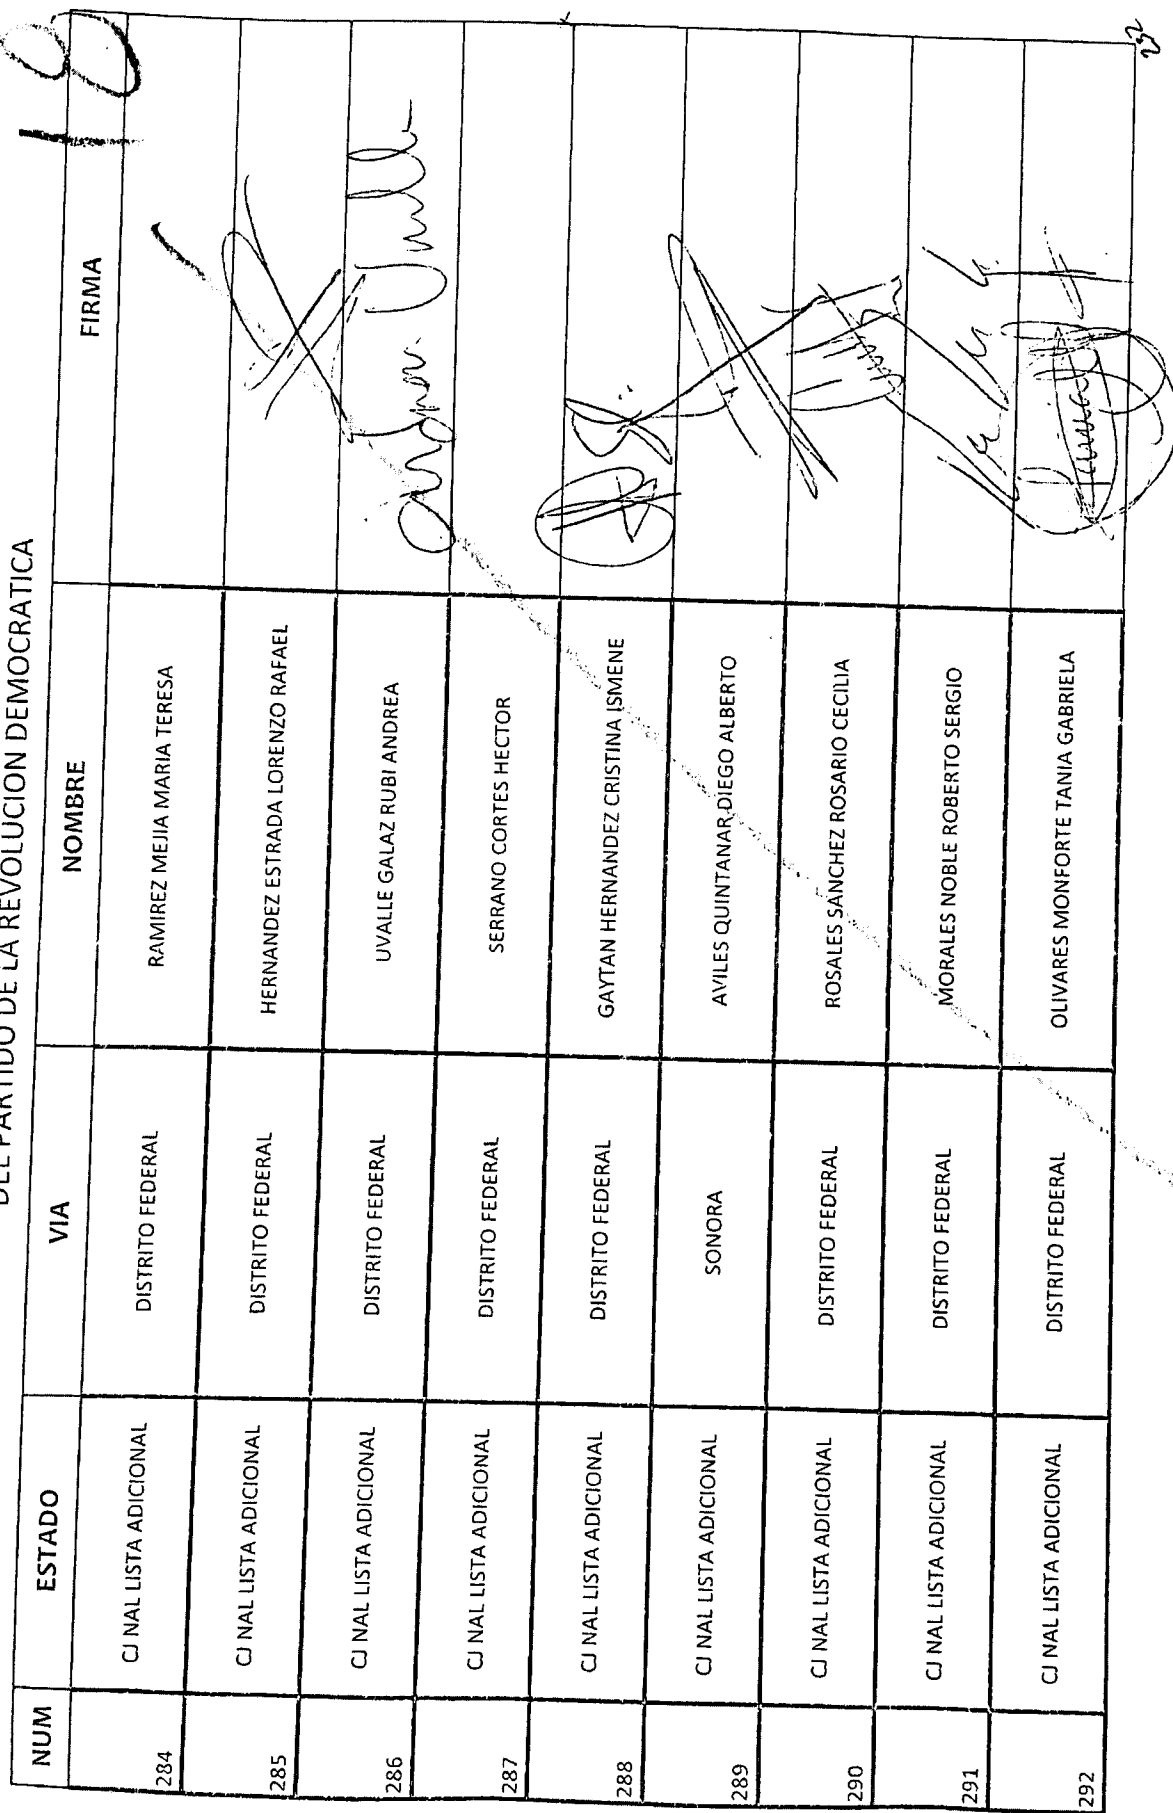 DEL PARTIDO DE LA REVOLUCION DEMOCRATICA
18
NUM ESTADO VIA NOMBRE FIRMA
284 CJ NAL LISTA ADICIONAL DISTRITO FEDERAL RAMIREZ MEJIA MARIA TERESA
285 CJ NAL LISTA ADICIONAL DISTRITO FEDERAL HERNANDEZ ESTRADA LORENZO RAFAEL
286 CJ NAL LISTA ADICIONAL DISTRITO FEDERAL UVALLE GALAZ RUBI ANDREA
287 CJ NAL LISTA ADICIONAL DISTRITO FEDERAL SERRANO CORTES HECTOR
288 CJ NAL LISTA ADICIONAL DISTRITO FEDERAL GAYTAN HERNANDEZ CRISTINA ISMENE
289 CJ NAL LISTA ADICIONAL SONORA AVILES QUINTANAR DIEGO ALBERTO
290 CJ NAL LISTA ADICIONAL DISTRITO FEDERAL ROSALES SANCHEZ ROSARIO CECILIA
291 CJ NAL LISTA ADICIONAL DISTRITO FEDERAL MORALES NOBLE ROBERTO SERGIO
292 CJ NAL LISTA ADICIONAL DISTRITO FEDERAL OLIVARES MONFORTE TANIA GABRIELA